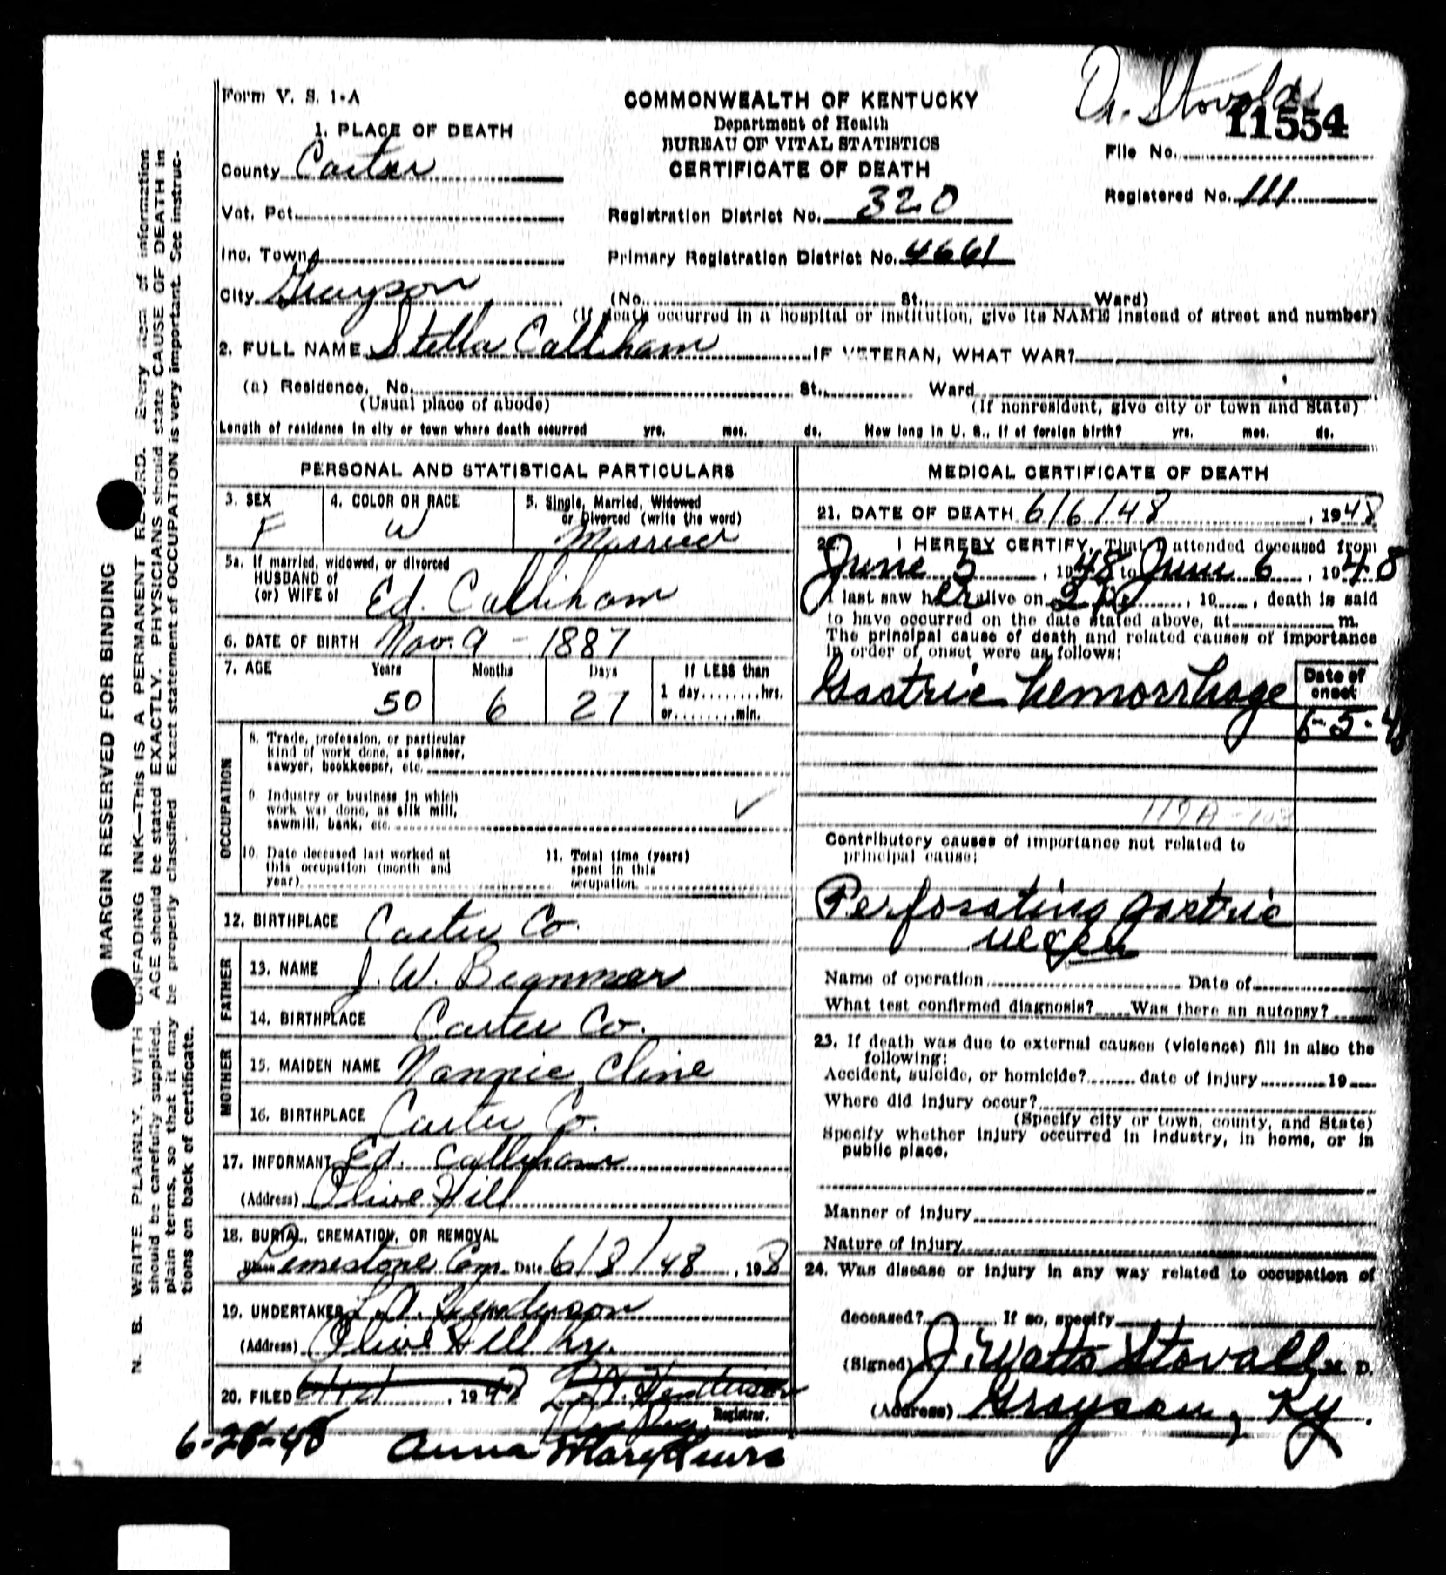 Dr. Stovolds
11554
Form V. S. 1-A
COMMONWEALTH OF KENTUCKY
Department of Health
BUREAU OF VITAL STATISTICS
CERTIFICATE OF DEATH
File No.
Registered No. 111
1. PLACE OF DEATH
County Carter
Vot. Pct.
Inc. Town
City Grayson
Registration District No. 320
Primary Registration District No. 4661
(No. St., Ward)
(If death occurred in a hospital or institution, give its NAME instead of street and number)
2. FULL NAME Stella Calliham IF VETERAN, WHAT WAR?
(a) Residence, No. St., Ward
(Usual place of abode) (If nonresident, give city or town and State)
Length of residence in city or town where death occurred yrs. mos. ds. How long in U. S., if of foreign birth? yrs. mos. ds.
PERSONAL AND STATISTICAL PARTICULARS
3. SEX
F
4. COLOR OR RACE
W
5. Single, Married, Widowed
or Divorced (write the word)
Married
5a. If married, widowed, or divorced
HUSBAND of
(or) WIFE of Ed. Calliham
6. DATE OF BIRTH Nov. 9 - 1887
7. AGE Years Months Days If LESS than
1 day........hrs.
50 6 27 or........min.
OCCUPATION
8. Trade, profession, or particular
kind of work done, as spinner,
sawyer, bookkeeper, etc.
9. Industry or business in which
work was done, as silk mill,
sawmill, bank, etc.
10. Date deceased last worked at
this occupation (month and
year)
11. Total time (years)
spent in this
occupation
12. BIRTHPLACE Carter Co.
FATHER
13. NAME J. W.
14. BIRTHPLACE Carter Co.
MOTHER
15. MAIDEN NAME Nannie Cline
16. BIRTHPLACE Carter Co.
17. INFORMANT Ed. Calliham
(Address) Olive Hill
18. BURIAL, CREMATION, OR REMOVAL
Place Limestone Cem. Date 6/8/48, 198
19. UNDERTAKER L. A. Henderson
(Address) Olive Hill Ky.
20. FILED 1948
Registrar.
6-28-48 Anna Mary
MEDICAL CERTIFICATE OF DEATH
21. DATE OF DEATH 6/6/48, 1948
22. I HEREBY CERTIFY, That I attended deceased from
June 5, 1948 to June 6, 1948
I last saw her alive on, 19, death is said
to have occurred on the date stated above, at m.
The principal cause of death and related causes of importance
in order of onset were as follows:
Date of
onset
Gastric hemorrhage
6-5-48
Contributory causes of importance not related to
principal cause:
Perforating gastric
ulcer
Name of operation Date of
What test confirmed diagnosis? Was there an autopsy?
23. If death was due to external causes (violence) fill in also the
following:
Accident, suicide, or homicide? date of injury 19
Where did injury occur?
(Specify city or town, county, and State)
Specify whether injury occurred in industry, in home, or in
public place.
Manner of injury
Nature of injury
24. Was disease or injury in any way related to occupation of
deceased? If so, specify
(Signed) J. Watts Stovall, M. D.
(Address) Grayson, Ky.
MARGIN RESERVED FOR BINDING
N. B. WRITE PLAINLY, WITH UNFADING INK—THIS IS A PERMANENT RECORD. Every item of information
should be carefully supplied. AGE should be stated EXACTLY. PHYSICIANS should state CAUSE OF DEATH in
plain terms, so that it may be properly classified. Exact statement of OCCUPATION is very important. See instruc-
tions on back of certificate.